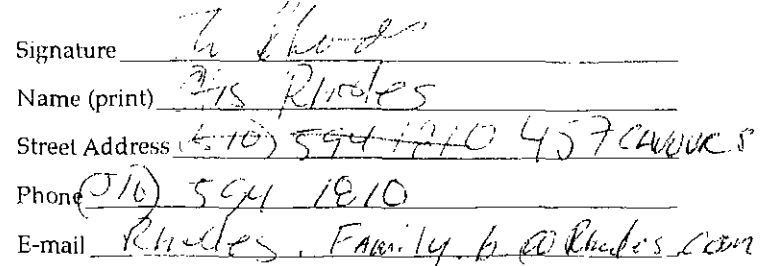 Signature
Name (print) Rhodes
Street Address (510) 594 1810 457
Phone (510) 594 1810
E-mail Rhodes.Family.6@Rhodes.com